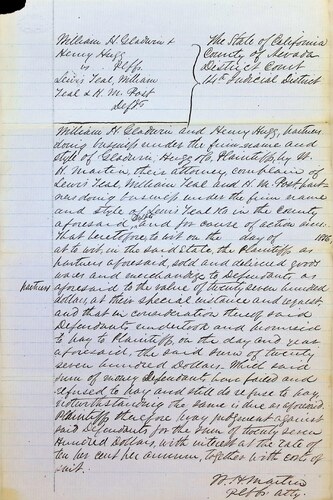 William H. Gladwin &
Henry Hugg
vs Plffs
Lewis Teal, William
Teal & H. M. Post
Defts
The State of California
County of Nevada
District Court
14th Judicial District
William H. Gladwin and Henry Hugg, partners
doing business under the firm name and
style of Gladwin, Hugg & Co, Plaintiffs, by W.
H. Martin, their attorney, complain of
Lewis Teal, William Teal and H. M. Post part-
ners doing business under the firm name
and style of Lewis Teal & Co in the County
Defts
aforesaid, and for cause of action aver:
That heretofore to wit on the day of
at to wit in the said State, the Plaintiffs as
partners aforesaid, sold and delivered goods
wares and merchandize to Defendants as
partners
aforesaid to the value of twenty seven hundred
dollars, at their special instance and request,
and that in consideration thereof said
Defendants understood and promised
to pay to Plaintiffs, on the day and year
aforesaid, the said sum of twenty
seven hundred Dollars. Which said
sum of money Defendants have failed and
refused to pay and still do refuse to pay,
notwithstanding the same is due as aforesaid.
Plaintiffs therefore pray judgment against
said Defendants for the sum of twenty seven
Hundred Dollars, with interest at the rate of
ten per cent per annum, together with cost of
suit.
W. H. Martin
Plffs atty.